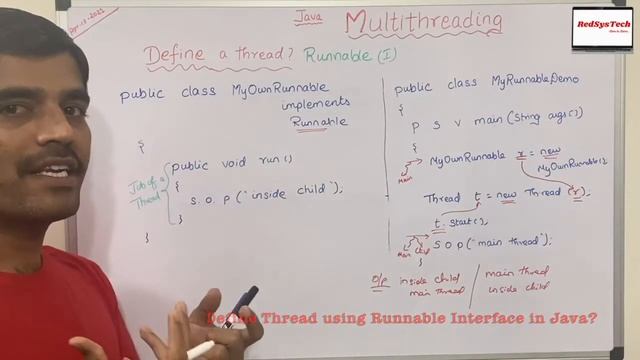 Apr-13-2021
Java
Multithreading
RedSysTech
Define a thread? Runnable (I)
public class MyOwnRunnable
implements
Runnable
{
Job of a
Thread
public void run()
{
S. O. P ("inside child");
}
}
public class MyRunnableDemo
{
P S V main(String args[])
{
Main
MyOwnRunnable r = new
MyOwnRunnable();
Thread t = new Thread (r);
t. start();
Main
Child
S O P ("main thread");
}
O/P
inside child
main thread
main thread
inside child
Define Thread using Runnable Interface in Java?